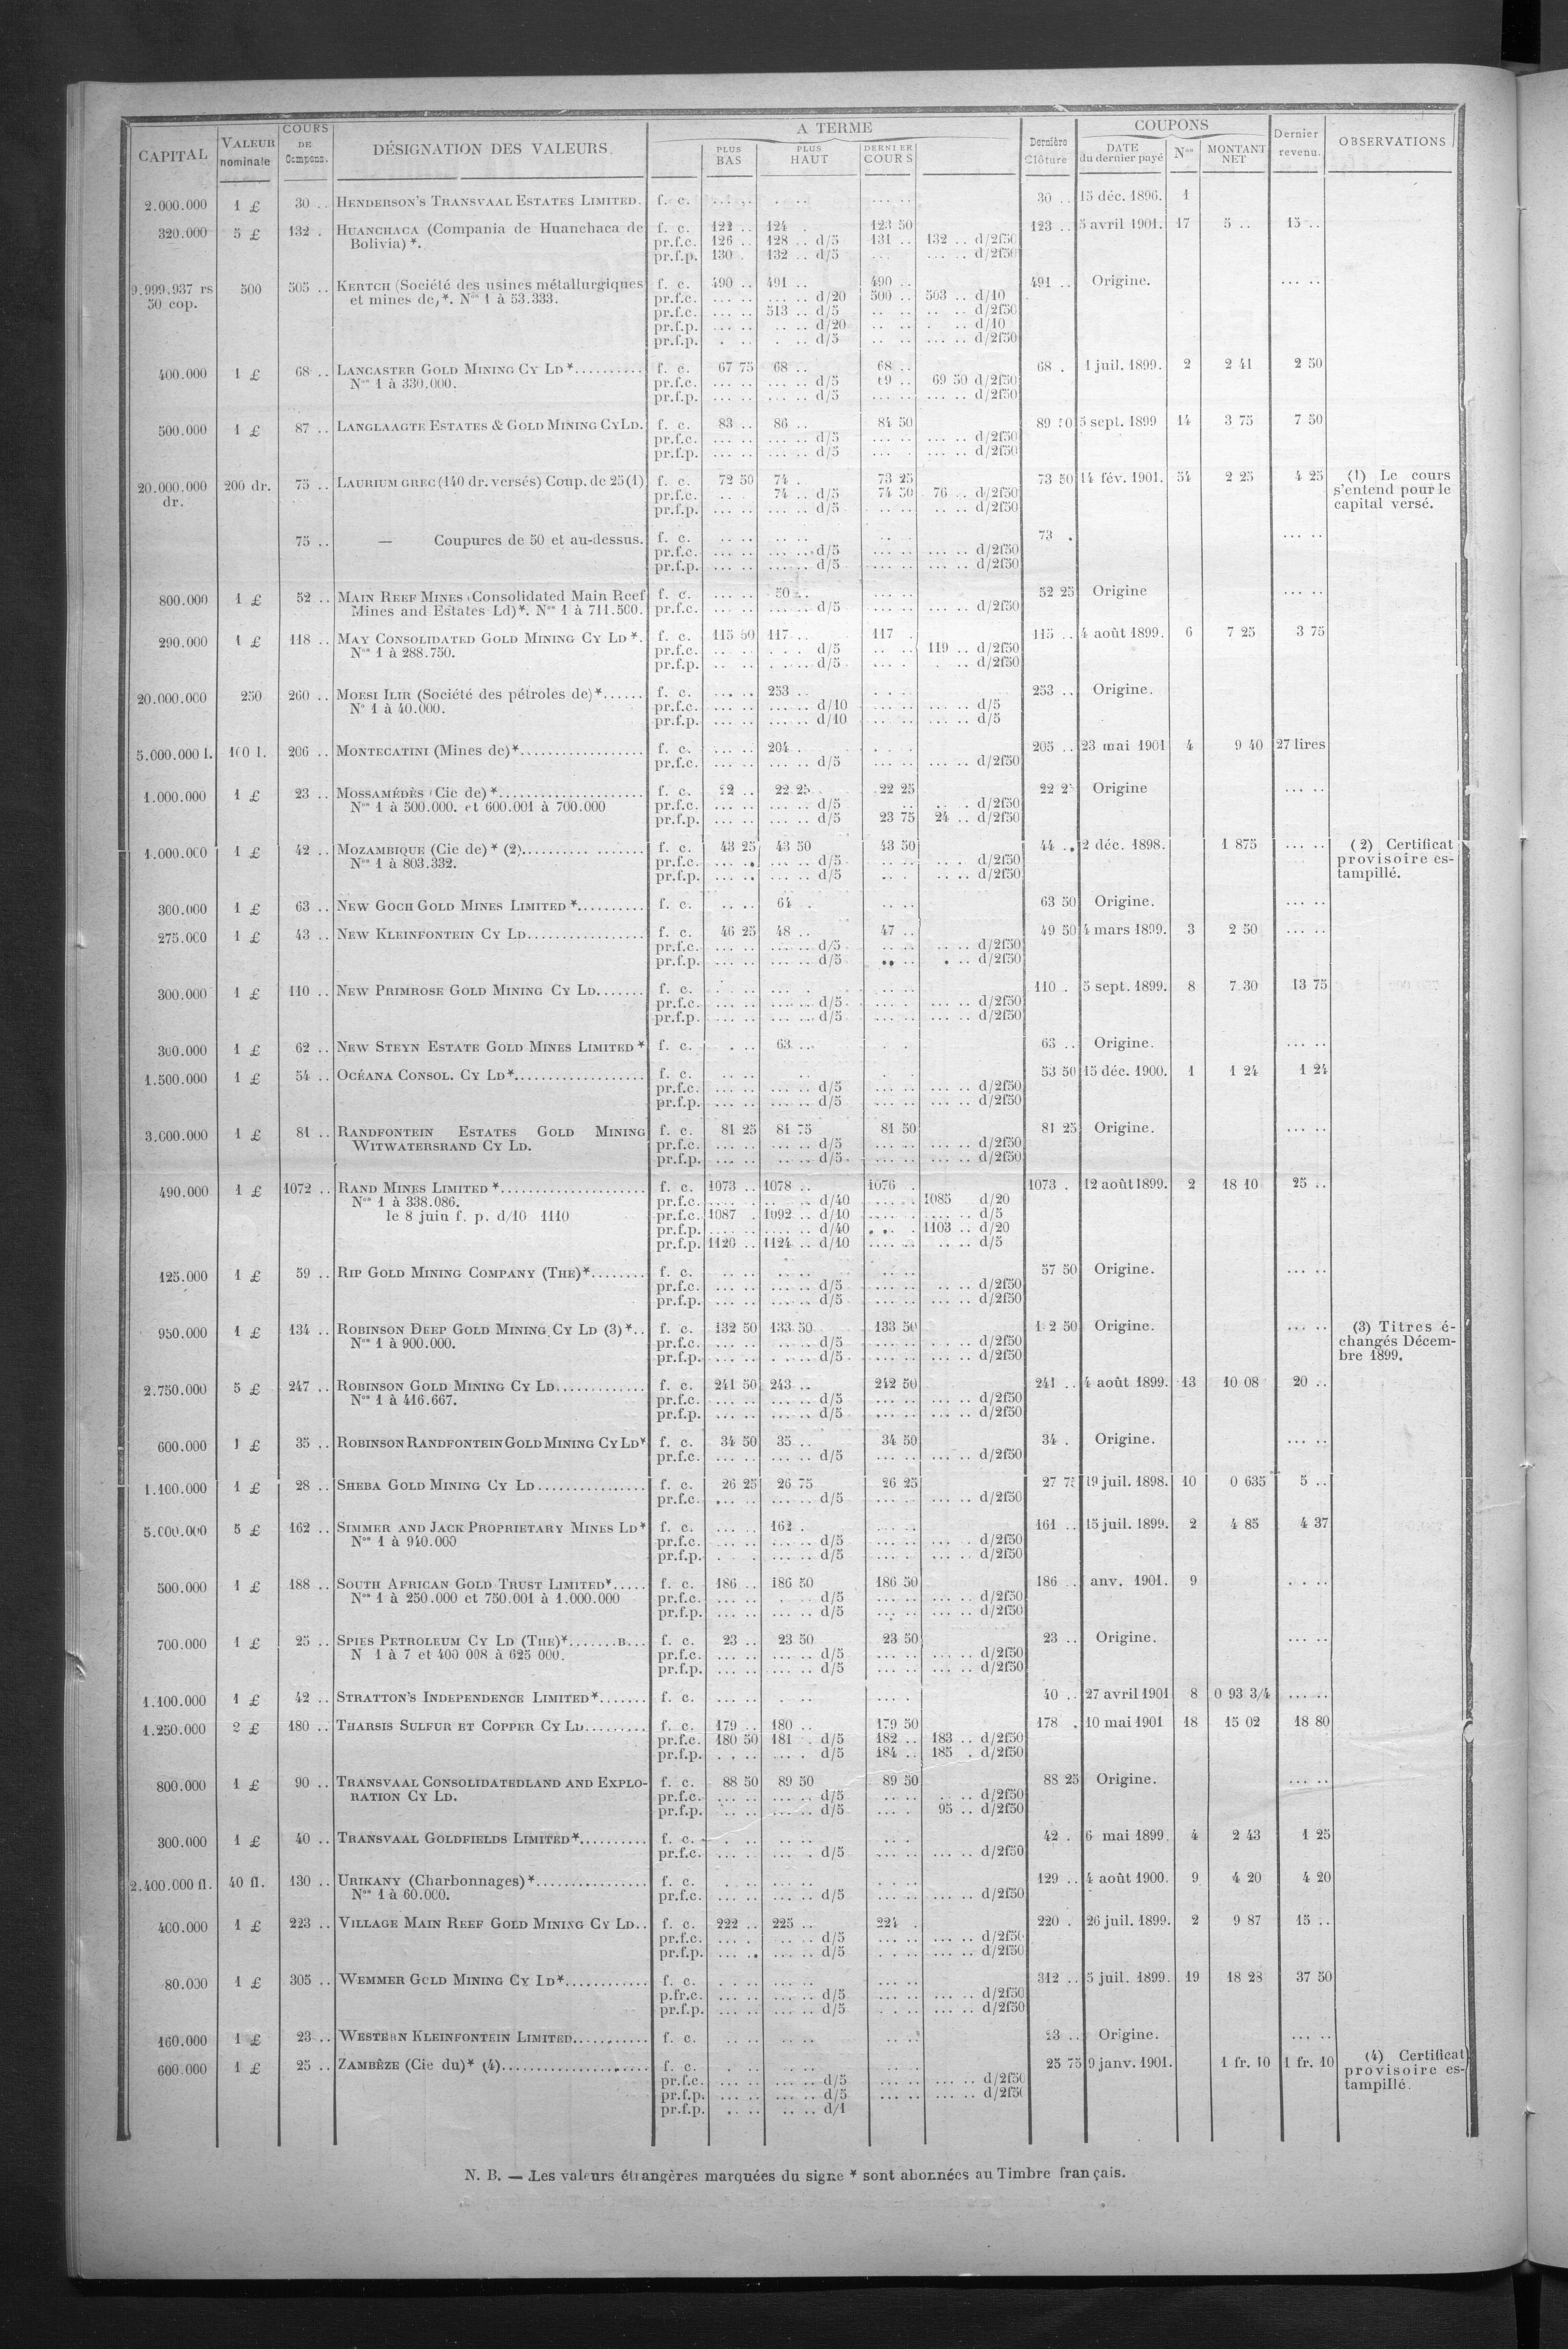 CAPITAL VALEUR nominale COURS DE Compens. DÉSIGNATION DES VALEURS. A TERME PLUS BAS PLUS HAUT DERNIER COURS Dernière Clôture COUPONS DATE du dernier payé Nos MONTANT NET Dernier revenu. OBSERVATIONS
2.000.000 1 £ 30 .. HENDERSON'S TRANSVAAL ESTATES LIMITED. f. c. 30 .. 15 déc. 1896. 1
320.000 5 £ 132 . HUANCHACA (Compania de Huanchaca de f. c. 122 .. 124 . 123 50 123 .. 5 avril 1901. 17 5 .. 15 ..
Bolivia) *. pr.f.c. 126 .. 128 .. d/5 131 .. 132 .. d/2f50
pr.f.p. 130 . 132 .. d/5 ... .. d/2f50
9.999.937 rs 500 505 .. KERTCH (Société des usines métallurgiques f. c. 490 .. 491 .. 490 .. 491 .. Origine. ... ..
50 cop. et mines de,*. Nos 1 à 53.333. pr.f.c. ... .. ... .. d/20 500 .. 503 .. d/10
pr.f.c. ... .. 513 .. d/5 .. .. d/2f50
pr.f.p. ... .. .. .. d/20 .. .. d/10
pr.f.p. . .. . .. d/5 .. .. ... .. d/2f50
400.000 1 £ 68 .. LANCASTER GOLD MINING CY LD *.......... f. c. 67 75 68 .. 68 .. 68 . 1 juil. 1899. 2 2 41 2 50
Nos 1 à 330.000. pr.f.c. ... .. ... .. d/5 69 .. 69 50 d/2f50
pr.f.p. ... .. ... .. d/5 ... .. d/2f50
500.000 1 £ 87 .. LANGLAAGTE ESTATES & GOLD MINING CY LD. f. c. 83 .. 86 .. 84 50 89 50 5 sept. 1899 14 3 75 7 50
pr.f.c. ... .. ... .. d/5 ... .. d/2f50
pr.f.p. ... .. ... .. d/5 ... .. d/2f50
20.000.000 200 dr. 75 .. LAURIUM GREC (140 dr. versés) Coup. de 25 (1) f. c. 72 50 74 . 73 25 73 50 14 fév. 1901. 54 2 25 4 25 (1) Le cours
dr. pr.f.c. .. . 74 .. d/5 74 50 76 .. d/2f50 s'entend pour le
pr.f.p. ... .. ... .. d/5 .. .. d/2f50 capital versé.
75 .. — Coupures de 50 et au-dessus. f. c. .. .. .. .. 73 . ... ..
pr.f.c. ... .. ... .. d/5 ... .. d/2f50
pr.f.p. ... .. ... .. d/5 ... .. d/2f50
800.000 1 £ 52 .. MAIN REEF MINES (Consolidated Main Reef f. c. ... .. 50 .. 52 25 Origine ... ..
Mines and Estates Ld)*. Nos 1 à 711.500. pr.f.c. ... .. ... .. d/5 ... .. d/2f50
290.000 1 £ 118 .. MAY CONSOLIDATED GOLD MINING CY LD *. f. c. 115 50 117 .. 117 . 115 .. 4 août 1899. 6 7 25 3 75
Nos 1 à 288.750. pr.f.c. .. .. . . . d/5 119 .. d/2f50
pr.f.p. .. .. ... .. d/5 . .. d/2f50
20.000.000 250 260 .. MOESI ILIR (Société des pétroles de)*...... f. c. ... .. 253 .. 253 .. Origine.
No 1 à 40.000. pr.f.c. ... .. ... .. d/10 ... .. d/5
pr.f.p. ... .. ... .. d/10 ... .. d/5
5.000.000 l. 100 l. 206 .. MONTECATINI (Mines de)*.................. f. c. ... .. 204 . 205 .. 23 mai 1901 4 9 40 27 lires
pr.f.c. ... .. ... .. d/5 ... .. d/2f50
1.000.000 1 £ 23 .. MOSSAMÉDÈS (Cie de) *..................... f. c. 22 .. 22 25 22 25 22 2 Origine ... ..
Nos 1 à 500.000. et 600.001 à 700.000 pr.f.c. ... .. ... .. d/5 .. . d/2f50
pr.f.p. ... .. ... .. d/5 23 75 24 .. d/2f50
1.000.000 1 £ 42 .. MOZAMBIQUE (Cie de) * (2).......... ....... f. c. 43 25 43 50 43 50 44 .. 2 déc. 1898. 1 875 ... .. (2) Certificat
Nos 1 à 803.332. pr.f.c. ... .. ... .. d/5 ... . d/2f50 provisoire es-
pr.f.p. ... .. ... .. d/5 .. .. d/2f50 tampillé.
300.000 1 £ 63 .. NEW GOCH GOLD MINES LIMITED *.......... f. c. .. .. 64 . 63 50 Origine. ... ..
275.000 1 £ 43 .. NEW KLEINFONTEIN CY LD................. f. c. 46 25 48 .. 47 .. 49 50 4 mars 1899. 3 2 50 ... ..
pr.f.c. ... .. ... .. d/5 .. .. d/2f50
pr.f.p. ... .. ... .. d/5 . .. d/2f50
300.000 1 £ 110 .. NEW PRIMROSE GOLD MINING CY LD....... f. c. 110 . 5 sept. 1899. 8 7.30 13 75
pr.f.c. ... .. ... .. d/5 ... .. d/2f50
pr.f.p. ... .. ... .. d/5 ... .. d/2f50
300.000 1 £ 62 .. NEW STEYN ESTATE GOLD MINES LIMITED * f. c. . .. 63 .. 63 .. Origine. ... ..
1.500.000 1 £ 54 .. OCÉANA CONSOL. CY LD*................... f. c. .. .. 53 50 15 déc. 1900. 1 1 24 1 24
pr.f.c. ... .. ... .. d/5 ... .. d/2f50
pr.f.p. ... .. ... .. d/5 ... .. d/2f50
3.000.000 1 £ 81 .. RANDFONTEIN ESTATES GOLD MINING f. c. 81 25 81 75 81 50 81 25 Origine. ... ..
WITWATERSRAND CY LD. pr.f.c. ... .. ... .. d/5 ... .. d/2f50
pr.f.p. ... .. ... .. d/5 ... .. d/2f50
490.000 1 £ 1072 .. RAND MINES LIMITED *..................... f. c. 1073 .. 1078 .. 1076 . 1073 . 12 août 1899. 2 18 10 25 ..
Nos 1 à 338.086. pr.f.c. ... .. .. .. d/40 1085 d/20
le 8 juin f. p. d/10 1110 pr.f.c. 1087 . 1092 .. d/10 ... .. d/5
pr.f.p. ... .. ... .. d/40 1103 .. d/20
pr.f.p. 1120 .. 1124 .. d/10 .. .. d/5
125.000 1 £ 59 .. RIP GOLD MINING COMPANY (THE)*........ f. c. .. .. .. .. 57 50 Origine. ... ..
pr.f.c. ... .. ... .. d/5 ... .. d/2f50
pr.f.p. ... .. ... .. d/5 ... .. d/2f50
950.000 1 £ 134 .. ROBINSON DEEP GOLD MINING CY LD (3)*.. f. c. 132 50 133 50 133 50 1 2 50 Origine. ... .. (3) Titres é-
Nos 1 à 900.000. pr.f.c. ... .. ... .. d/5 ... .. d/2f50 changés Décem-
pr.f.p. ... .. ... .. d/5 ... .. d/2f50 bre 1899.
2.750.000 5 £ 247 .. ROBINSON GOLD MINING CY LD............. f. c. 241 50 243 .. 242 50 241 .. 4 août 1899. 13 10 08 20 ..
Nos 1 à 416.667. pr.f.c. ... .. ... .. d/5 ... .. d/2f50
pr.f.p. ... .. ... .. d/5 ... .. d/2f50
600.000 1 £ 35 .. ROBINSON RANDFONTEIN GOLD MINING CY LD* f. c. 34 50 35 .. 34 50 34 . Origine. ... ..
pr.f.c. ... .. ... .. d/5 ... .. d/2f50
1.100.000 1 £ 28 .. SHEBA GOLD MINING CY LD................ f. c. 26 25 26 75 26 25 27 75 19 juil. 1898. 10 0 635 5 ..
pr.f.c. ... .. ... .. d/5 ... .. d/2f50
5.000.000 5 £ 162 .. SIMMER AND JACK PROPRIETARY MINES LD* f. c. ... .. 162 . 161 .. 15 juil. 1899. 2 4 85 4 37
Nos 1 à 940.000 pr.f.c. ... .. ... .. d/5 ... . d/2f50
pr.f.p. . . ... .. d/5 ... . d/2f50
500.000 1 £ 188 .. SOUTH AFRICAN GOLD TRUST LIMITED*..... f. c. 186 .. 186 50 186 50 186 .. anv. 1901. 9
Nos 1 à 250.000 et 750.001 à 1.000.000 pr.f.c. ... .. . .. d/5 ... .. d/2f50
pr.f.p. ... .. ... .. d/5 ... .. d/2f50
700.000 1 £ 25 .. SPIES PETROLEUM CY LD (THE)*.......B... f. c. 23 .. 23 50 23 50 23 .. Origine. ... ..
N 1 à 7 et 400 008 à 625 000. pr.f.c. ... .. ... .. d/5 ... .. d/2f50
pr.f.p. ... .. ... .. d/5 ... .. d/2f50
1.100.000 1 £ 42 .. STRATTON'S INDEPENDENCE LIMITED*....... f. c. ... .. 40 .. 27 avril 1901 8 0 93 3/4 ... ..
1.250.000 2 £ 180 .. THARSIS SULFUR ET COPPER CY LD......... f. c. 179 .. 180 .. 179 50 178 . 10 mai 1901 18 15 02 18 80
pr.f.c. 180 50 181 . d/5 182 .. 183 .. d/2f50
pr.f.p. . .. .. ... . d/5 184 .. 185 . d/2f50
800.000 1 £ 90 .. TRANSVAAL CONSOLIDATED LAND AND EXPLO- f. c. 88 50 89 50 89 50 88 25 Origine. ... ..
RATION CY LD. pr.f.c. ... .. ... .. d/5 .. .. d/2f50
pr.f.p. .. .. ... .. d/5 95 .. d/2f50
300.000 1 £ 40 .. TRANSVAAL GOLDFIELDS LIMITED*.......... f. c. . .. .. .. 42 . 6 mai 1899. 4 2 43 1 25
pr.f.c. ... .. ... . d/5 ... .. d/2f50
2.400.000 fl. 40 fl. 130 .. URIKANY (Charbonnages)*................ f. c. 129 .. 4 août 1900. 9 4 20 4 20
Nos 1 à 60.000. pr.f.c. ... .. ... .. d/5 ... .. d/2f50
400.000 1 £ 223 .. VILLAGE MAIN REEF GOLD MINING CY LD.. f. c. 222 .. 225 .. 224 . 220 . 26 juil. 1899. 2 9 87 15 ..
pr.f.c. ... . .. .. d/5 ... .. d/2f50
pr.f.p. ... .. ... .. d/5 ... .. d/2f50
80.000 1 £ 305 .. WEMMER GOLD MINING CY LD*............ f. c. . . .. ... .. 312 .. 5 juil. 1899. 19 18 28 37 50
p.fr.c. ... .. ... .. d/5 ... .. d/2f50
pr.f.p. ... .. ... .. d/5 ... .. d/2f50
160.000 1 £ 23 .. WESTERN KLEINFONTEIN LIMITED........... f. c. .. .. .. .. 23 .. Origine. ... ..
600.000 1 £ 25 .. ZAMBÈZE (Cie du)* (4)..................... f. c. 25 75 9 janv. 1901. 1 fr. 10 1 fr. 10 (4) Certificat
pr.f.c. ... .. ... .. d/5 ... .. d/2f50 provisoire es-
pr.f.p. ... .. ... .. d/5 ... .. d/2f50 tampillé.
pr.f.p. .. .. .. .. d/1
N. B. — Les valeurs étrangères marquées du signe * sont abonnées au Timbre français.